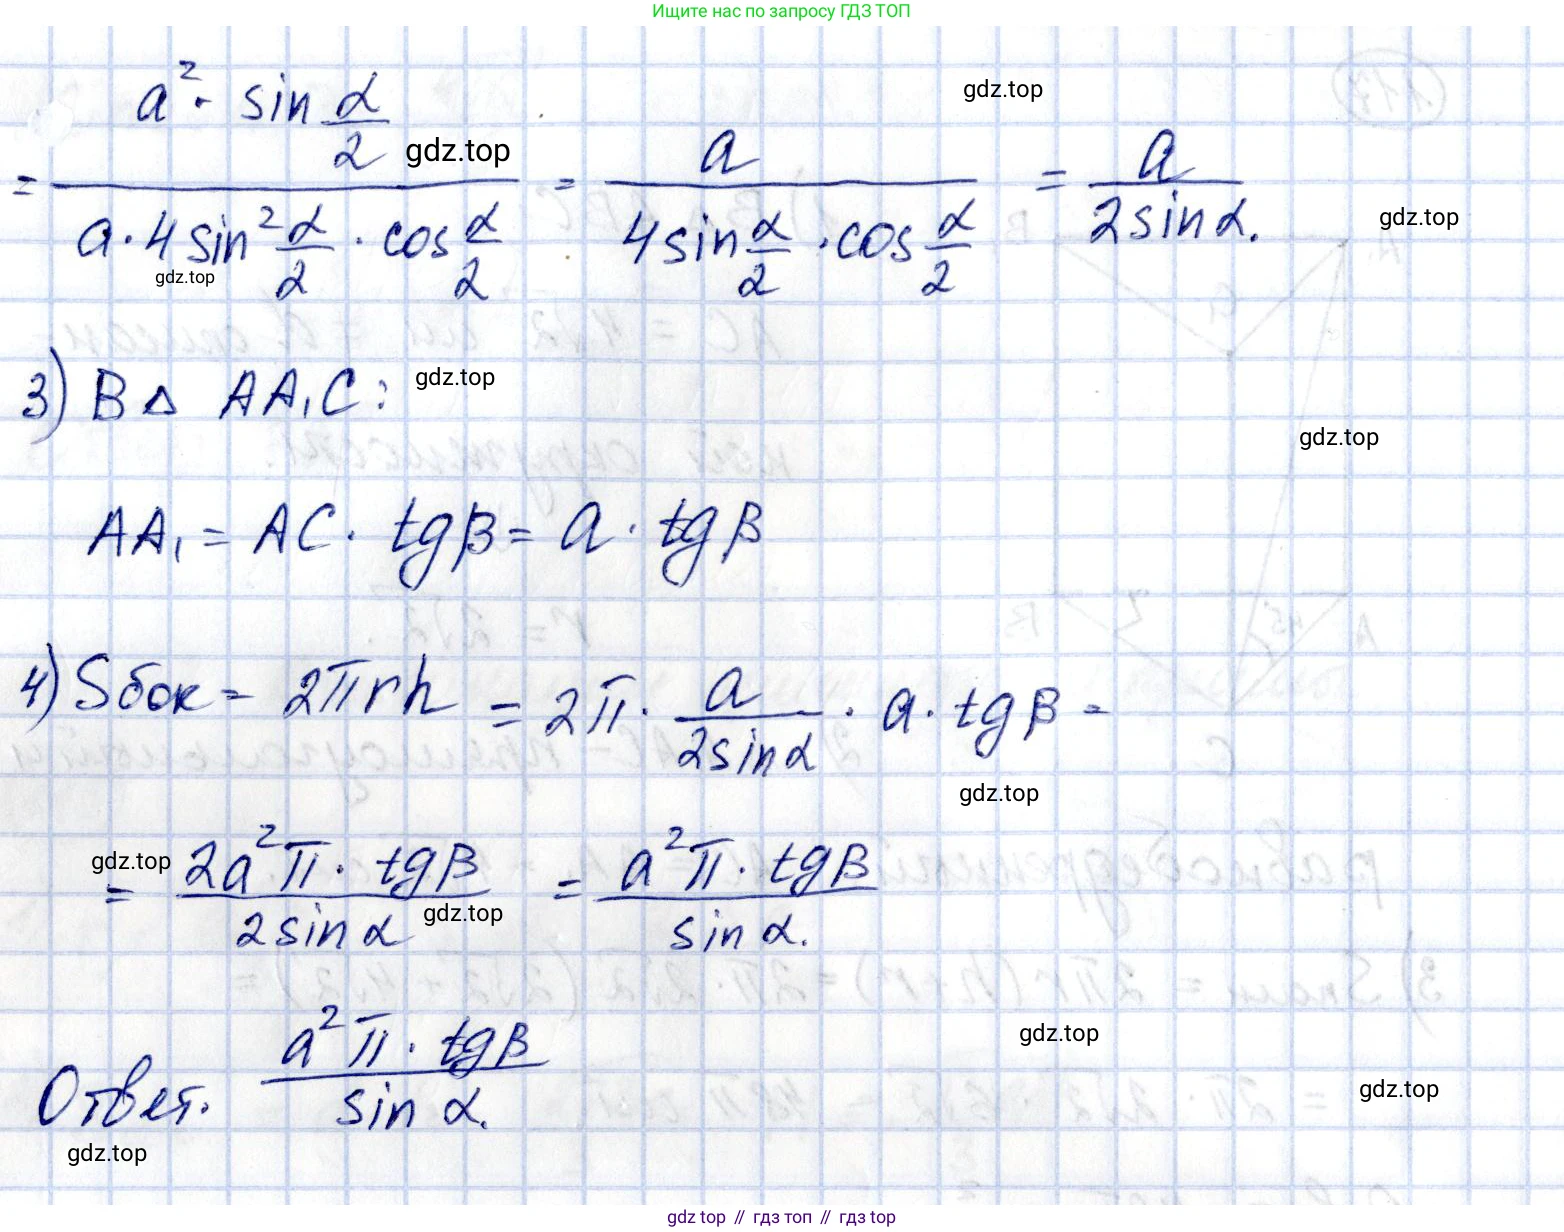 Ищите нас по запросу ГДЗ ТОП
gdz.top
= (a² · sin α/2) / (a · 4 sin² α/2 · cos α/2) = a / (4 sin α/2 · cos α/2) = a / (2 sin α).
gdz.top
gdz.top
gdz.top
3) В △ AA₁C:
gdz.top
gdz.top
AA₁ = AC · tg β = a · tg β
4) Sбок = 2πrh = 2π · a / (2 sin α) · a · tg β =
gdz.top
gdz.top
= (2a²π · tg β) / (2 sin α) = (a²π · tg β) / (sin α).
gdz.top
gdz.top
Ответ. (a²π · tg β) / (sin α).
gdz.top
gdz.top
gdz top // гдз топ // гдз top